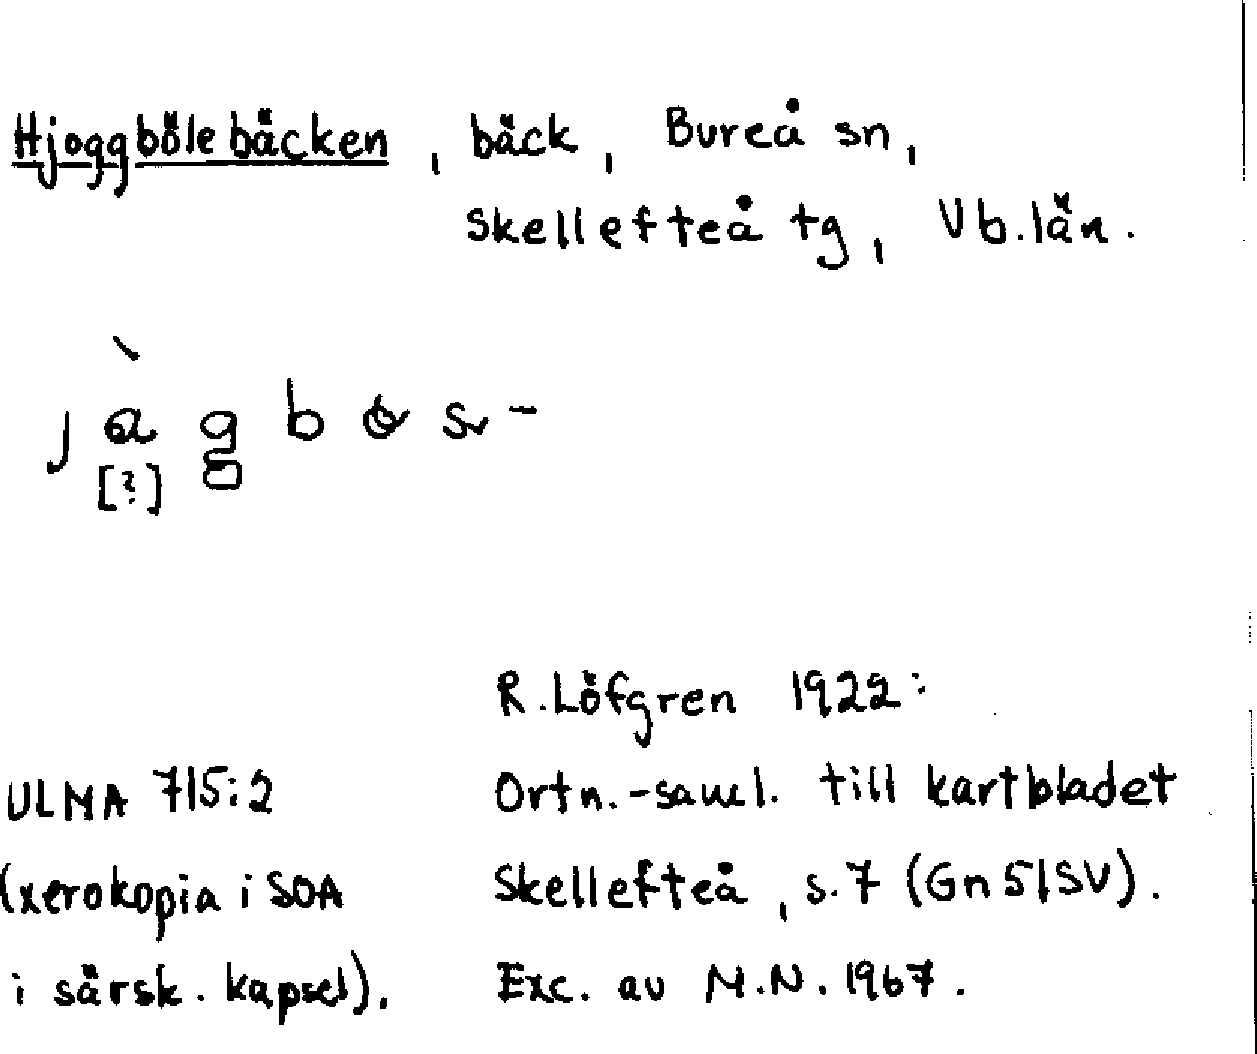 Hjoggbölebäcken, bäck, Bureå sn,
Skellefteå tg, Vb.län.
[?]
R. Löfgren 1922:
ULMA 715:2 Ortn.-saml. till kartbladet
(xerokopia i SOA Skellefteå, s. 7 (Gn 51SV).
i särsk. kapsel). Exc. av M.N. 1967.